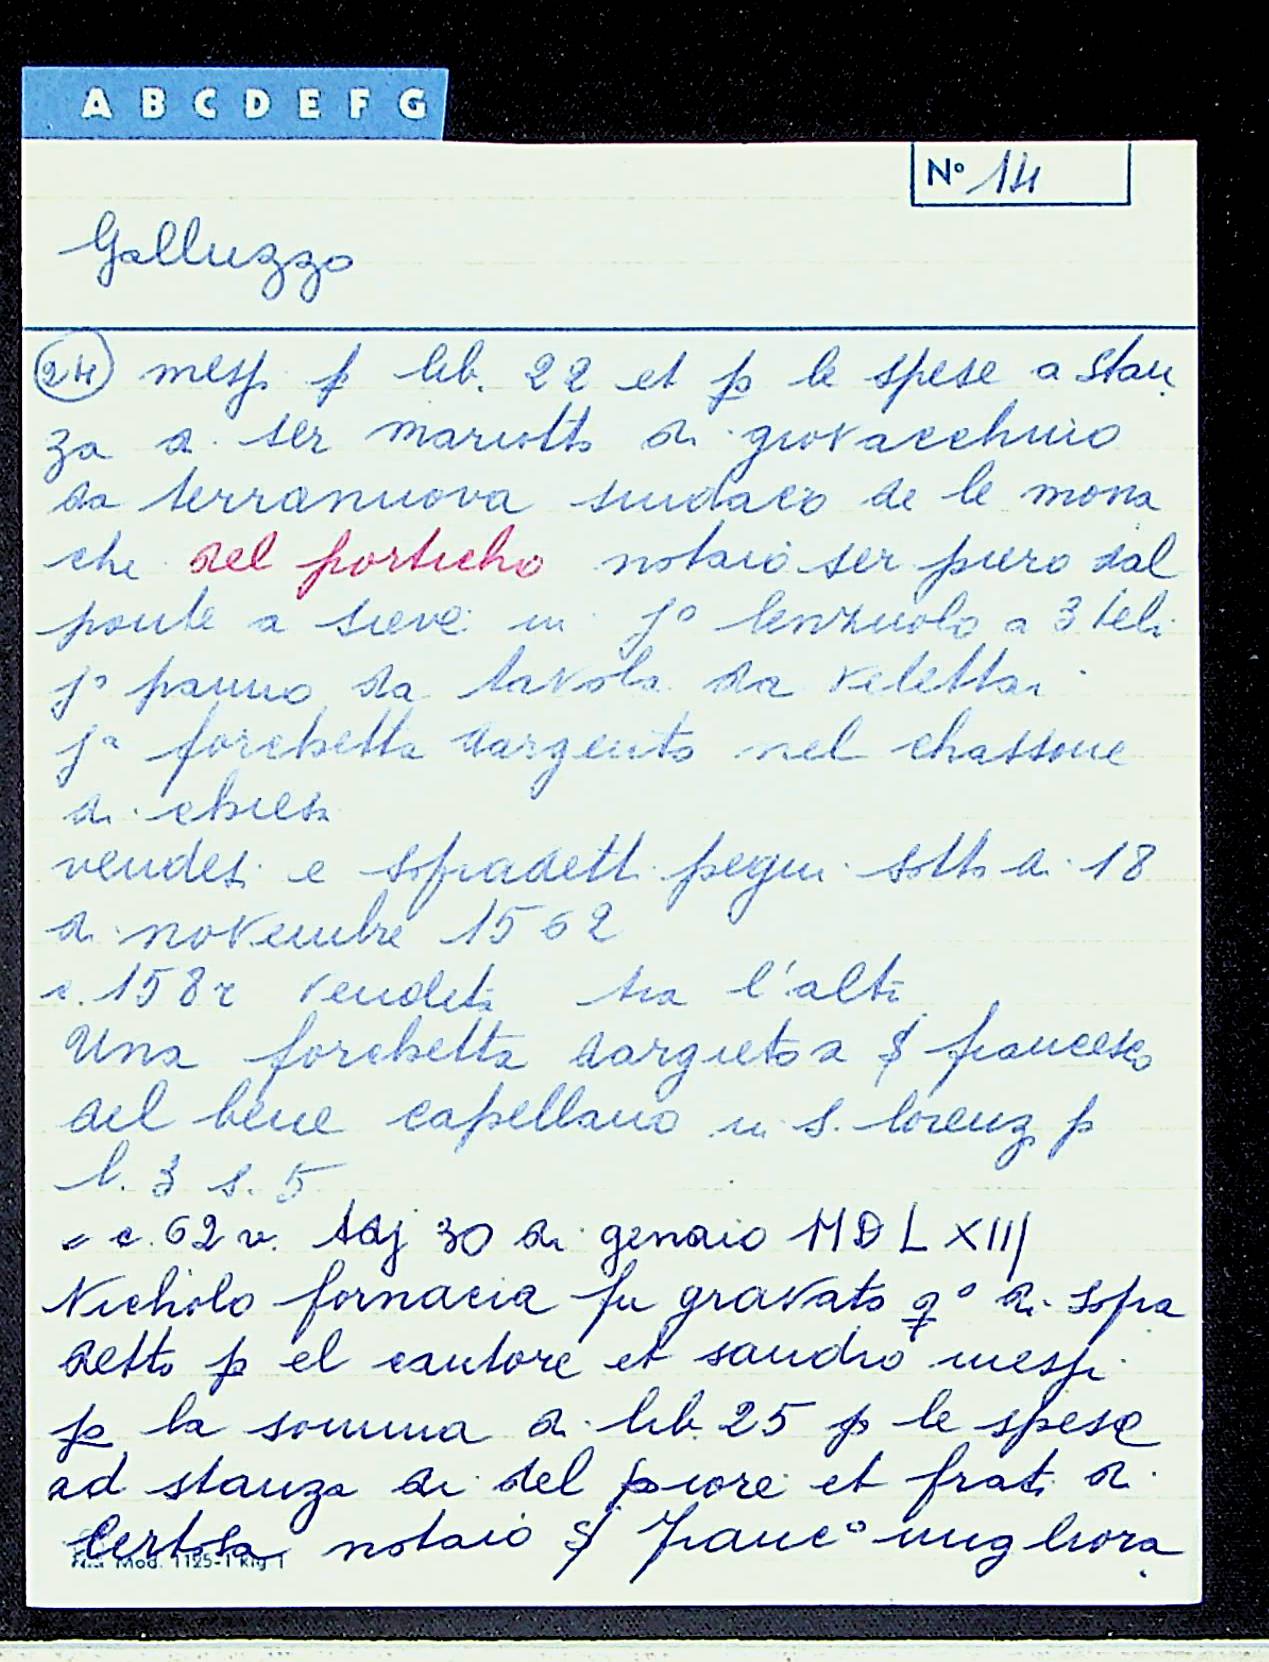 A B C D E F G
N° 14
Galluzzo
24 mesp. p lib. 22 et p le spese a stan
za di ser mariotto di giovacchino
da terranuova sindaco de le mona
che del porticho notaio ser piero dal
ponte a sieve in j° lenzuolo a 3 teli
j° panno da tavola da
jª forchetta dargento nel chassone
di chiesa
vendesi e sopradetti pegni sotto di 18
di novembre 1562
c. 158r vendeti tra l'altr
Una forchetta dargieto a francesco
del bene capellano in S. lorenz p
l. 3 s. 5
c. 62 v. Adj 30 di genaio MDLXIII
Nicholo fornacia fu gravato q° di sopra
detto p el cautore et sandro mesp.
p la somma di lib. 25 p le spese
ad stanza di del priore et frati di
Certosa notaio franc° migliora
Mod. 1125-1 Rig 1